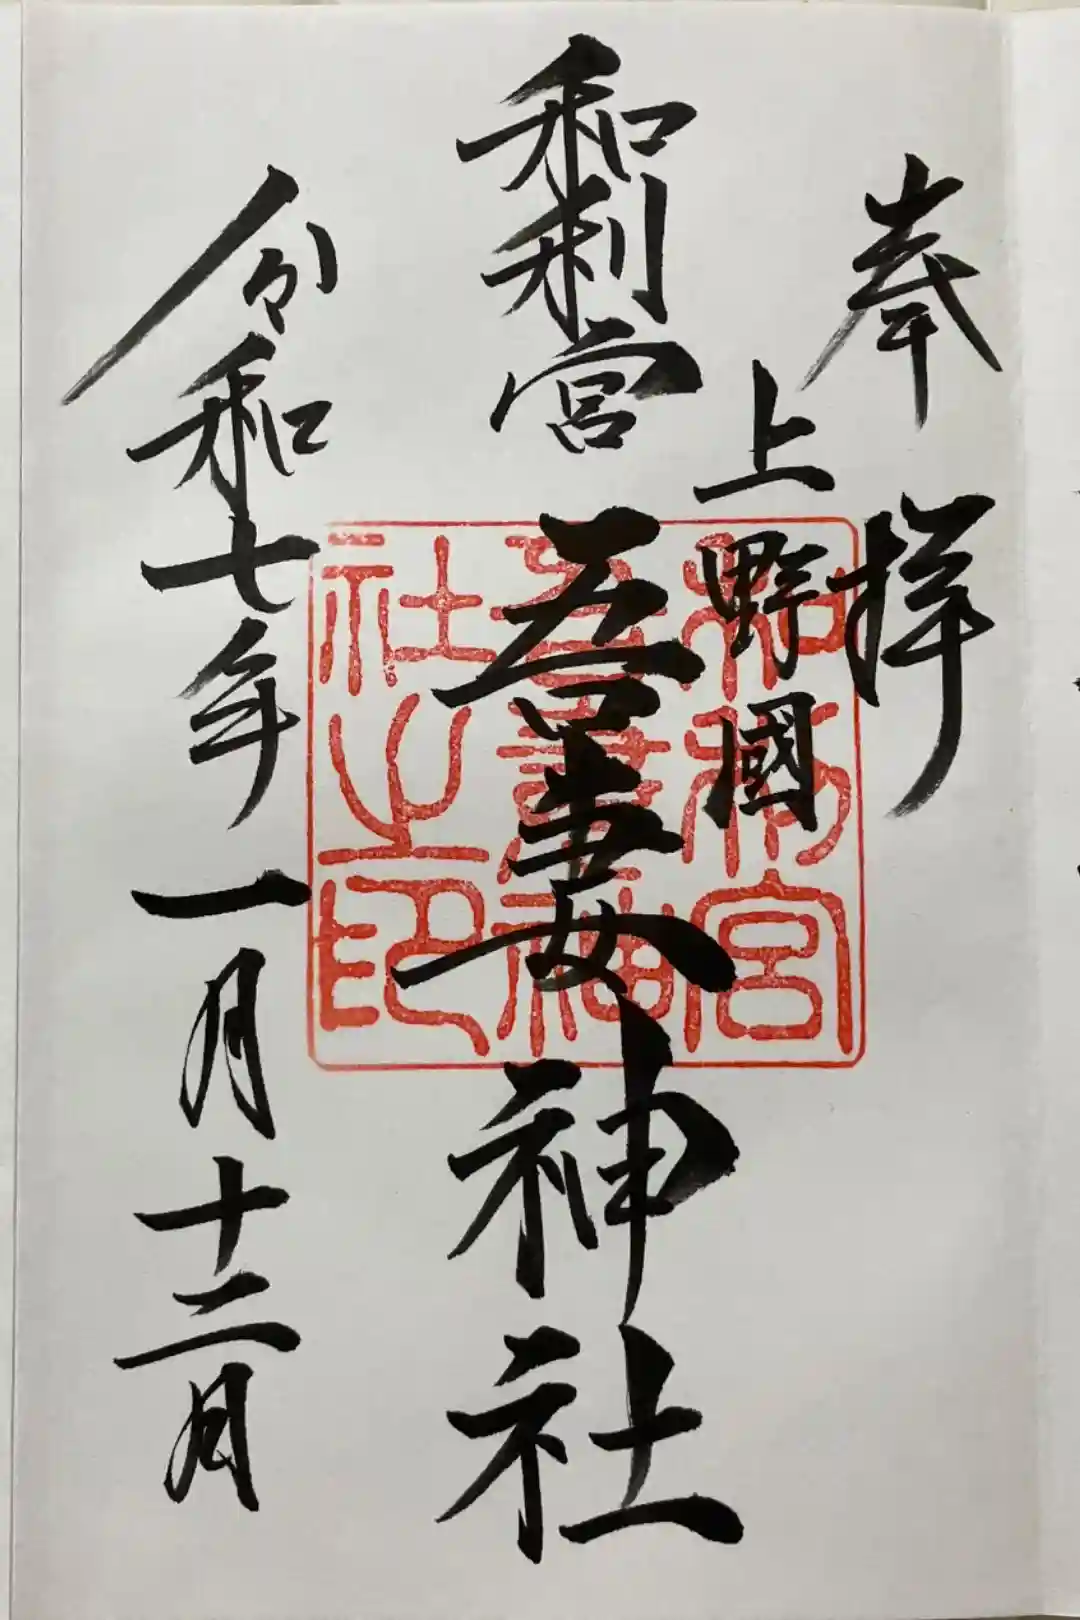 奉拝
上野國
和利宮
吾妻神社
令和七年一月十二日
和利宮
吾妻神
社之印